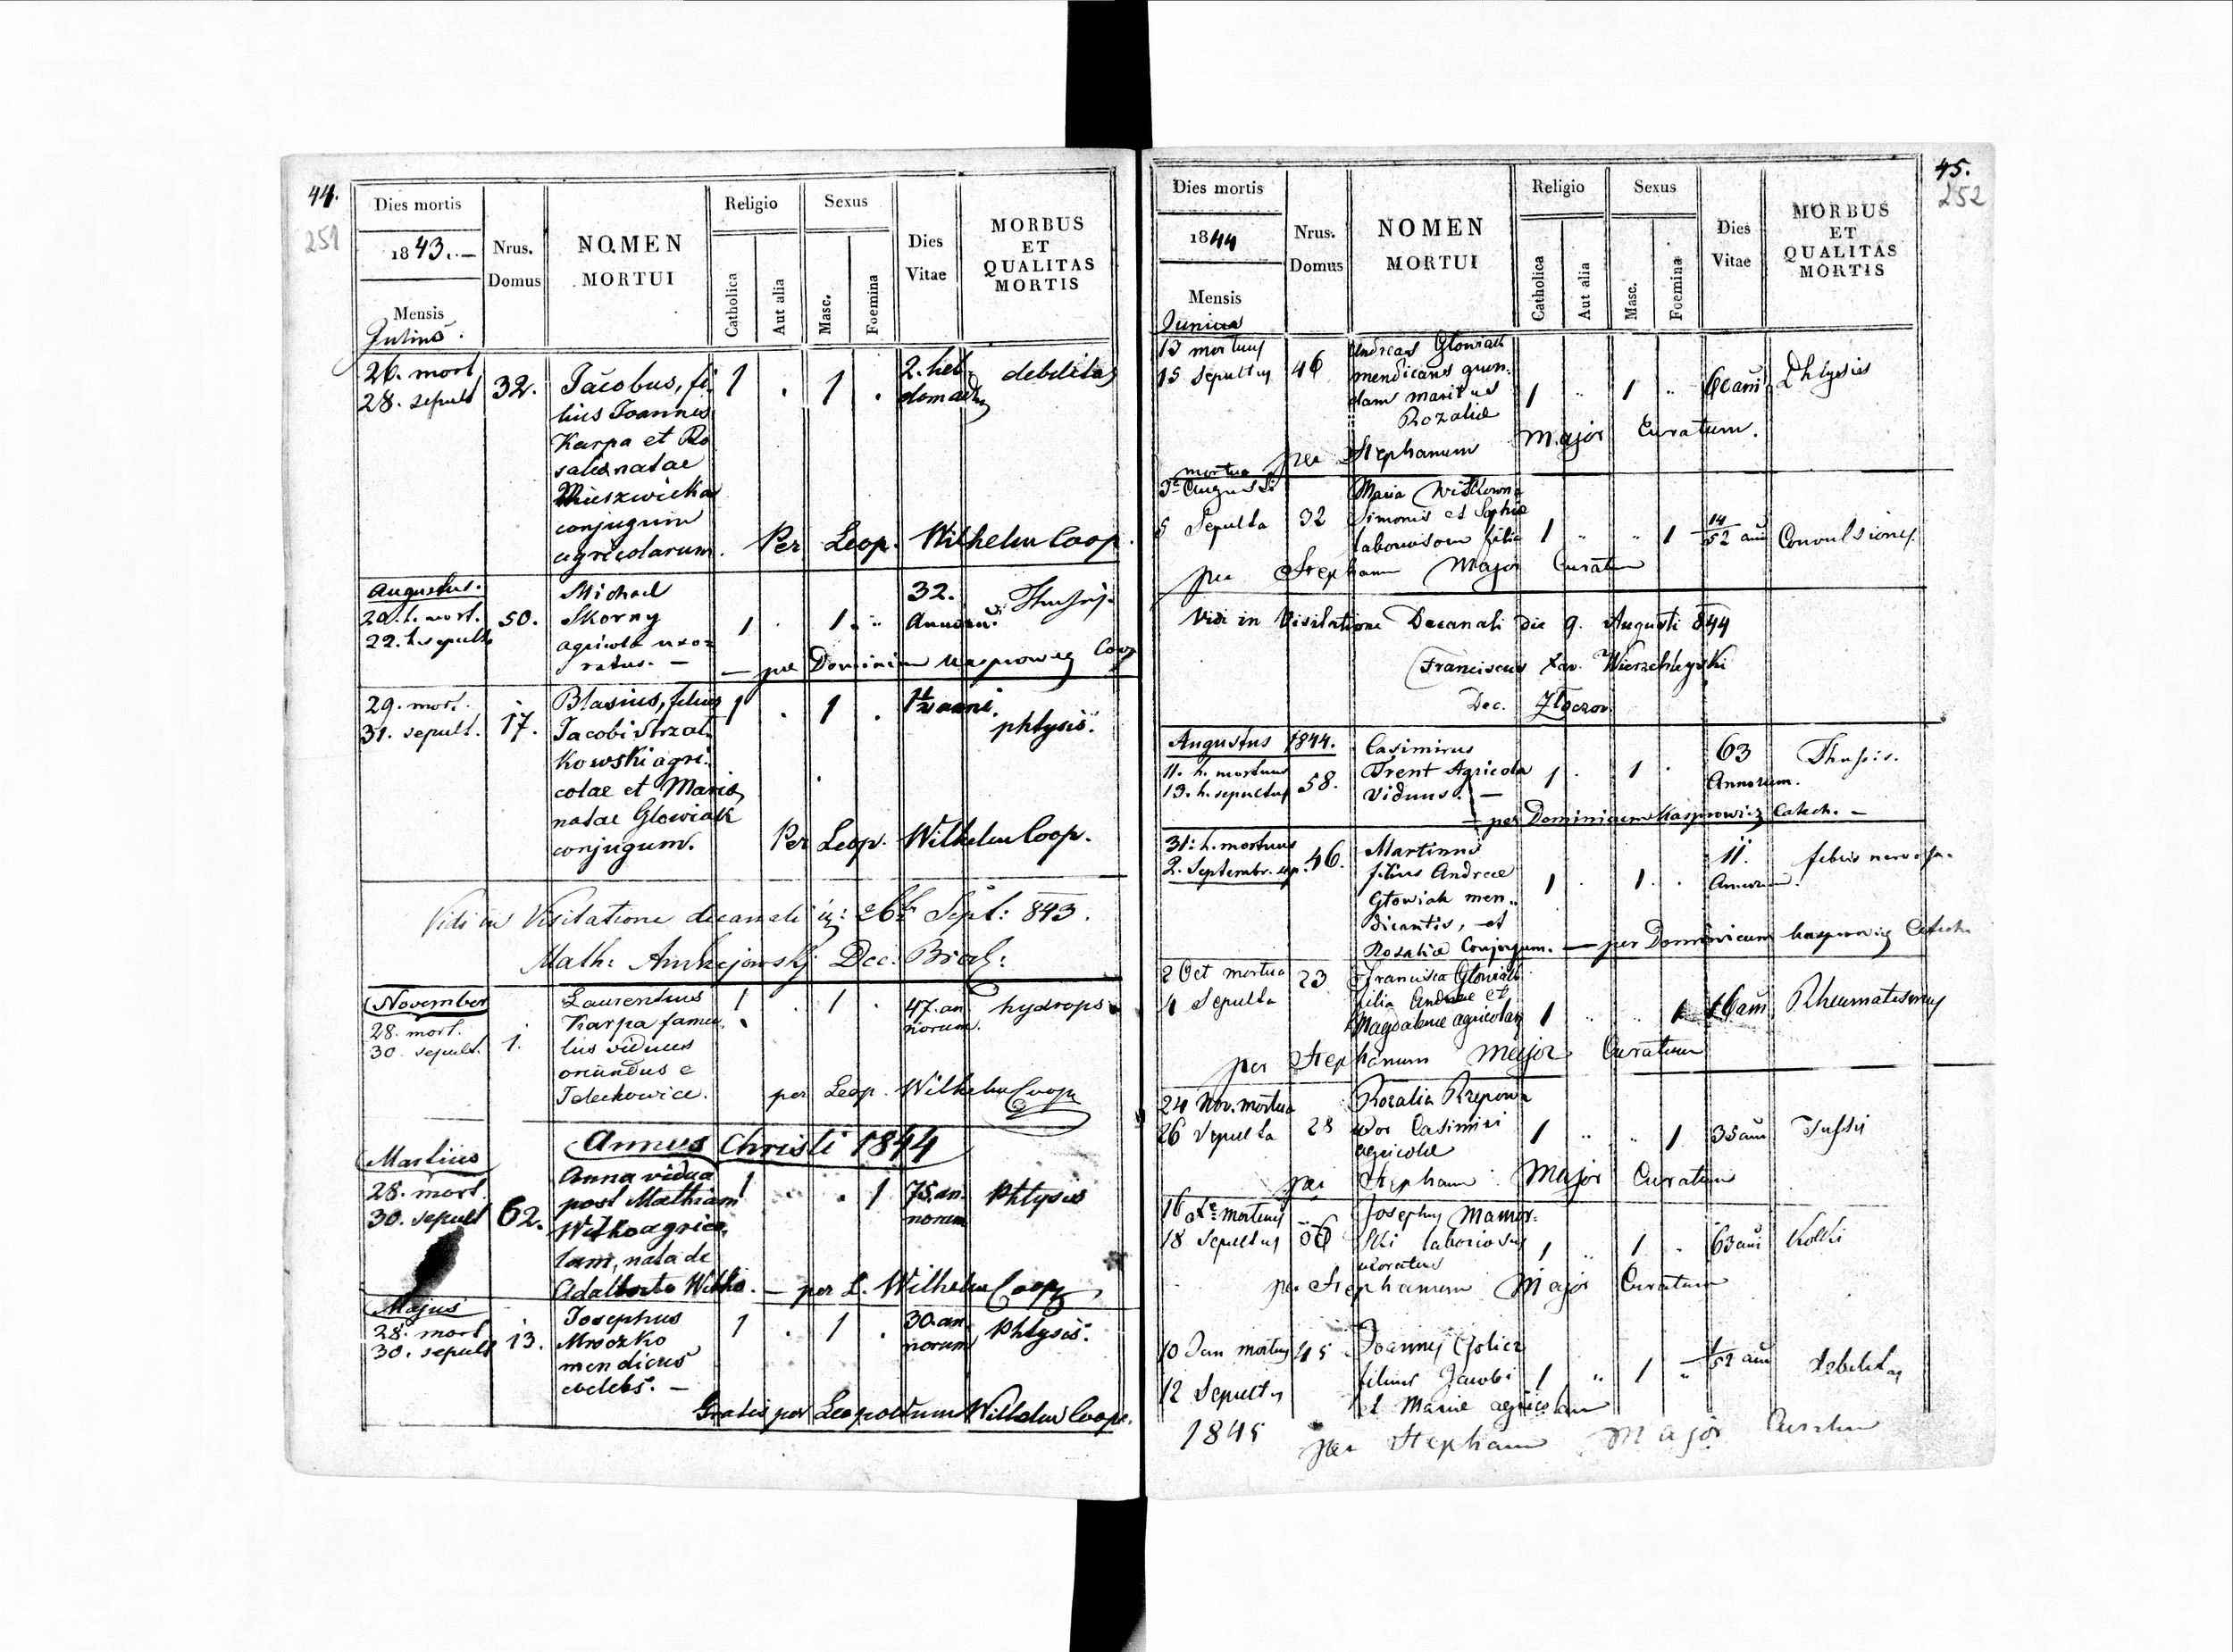 44.
251
Dies mortis
1843.
Mensis
Nrus.
Domus
NOMEN
MORTUI
Religio
Catholica
Aut alia
Sexus
Masc.
Foemina
Dies
Vitae
MORBUS
ET
QUALITAS
MORTIS
Julius.
26. mort. 32. Jacobus, fi 1 . 1 . 2. heb debilitas
28. sepult lius Joannes domad
Karpa et Ro
natae
conjugum
agricolarum. Per Leop. Wilhelm Coop.
Augustus. Michael 32.
20. h. mort. 50. Skorny 1 . 1
22. h. sepult agricola uxo=
ratus. — per
29. mort. 17. Blasius, filius 1 . 1 . anni. phtysis.
31. sepult. Jacobi Strzal
kowski agri.
colae et Maria
natae Glowiak
conjugum. Per Leop. Wilhelm Coop.
Vidi in Visitatione decanali Sept: 843.
Math: Dec: Brod:
November Laurentius 1 . 1 . 47. an hydrops
28. mort. 1. Karpa famu norum.
30. sepult. lus viduus
oriundus e
per Leop. Wilhelm Coop
Annus Christi 1844
Martius Anna vidua
28. mort. 62. post Mathiam 1 . . 1 75. an phtysis
30. sepult Witko agrico norum
lam, nata de
Adalberto Witko. — per L. Wilhelm Coop
Majus Josephus 1 . 1 . 30. an phtysis.
28. mort 13. Mroczko norum
30. sepult mendicus
celebs. —
Gratis per Leopoldum Wilhelm Coop.
45.
252
Dies mortis
1844
Mensis
Nrus.
Domus
NOMEN
MORTUI
Religio
Catholica
Aut alia
Sexus
Masc.
Foemina
Dies
Vitae
MORBUS
ET
QUALITAS
MORTIS
Junius
13 mortuus 46 Andreas Glowiak Phtysis
15 Sepultus mendicans quon.
dam maritus 1 " 1 "
Rozaliae
per Stephanum Major Curatum.
mortua
Augusti Maria
5 Sepulta 32 Simonis et Sophie
filia 1 " " 1 14/52 Convulsiones
per Stephanum Major Curatum
Vidi in Visitatione Decanali die 9. Augusti 844
Franciscus Xav.
Dec.
Augustus 1844. Casimirus 63
11. h. mortuus 58. Trent Agricola 1 . 1 . Annorum.
13. h. sepultus Viduus. —
— per Dominicum Kasprowicz Catech. —
31. h. mortuus 46. Martinus 11.
2. Septembr. sep. filius Andreae 1 . 1 .
Glowiak men=
dicantis, et
Rosalia Conjugum. — per Dominicum Kasprowicz
2 Oct mortua 23 Francisca Glowiak
4 Sepulta filia Andreae et 1 " " 1 Rheumatismus
Magdalenae agricolarum
per Stephanum Major Curatum
24 Nov. mortua Rozalia
26 Sepulta 28 uxor Casimiri 1 " " 1 35 Tussis
agricolae
per Stephanum Major Curatum
16 mortuus Josephus
18 Sepultus laboriosus 1 " 1 " 63
uxoratus
per Stephanum Major Curatum
10 Jan mortuus 45 Joannes
12 Sepultus filius Jacobi 1 " 1 " debilitas
et Mariae agricolarum
1845 per Stephanum Major Curatum